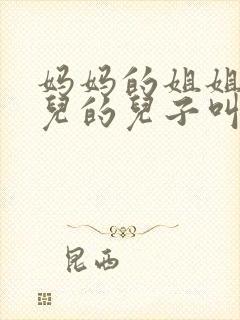 妈妈的姐姐
兒的兒子叫
昆西